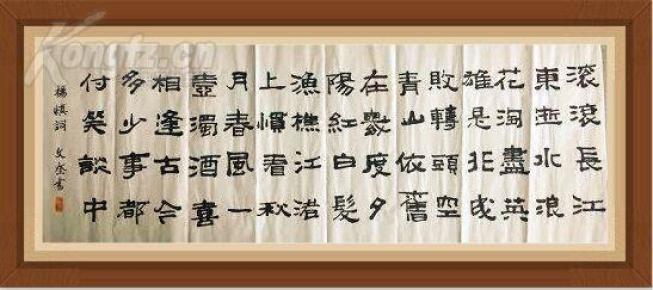 滚滚長江
東逝水浪
花淘盡英
雄是非成
敗轉頭空
青山依舊
在幾度夕
陽紅白髮
漁樵江渚
上慣看秋
月春風一
壺濁酒喜
相逢古今
多少事都
付笑談中
楊慎詞 文書
Kongfz.cn